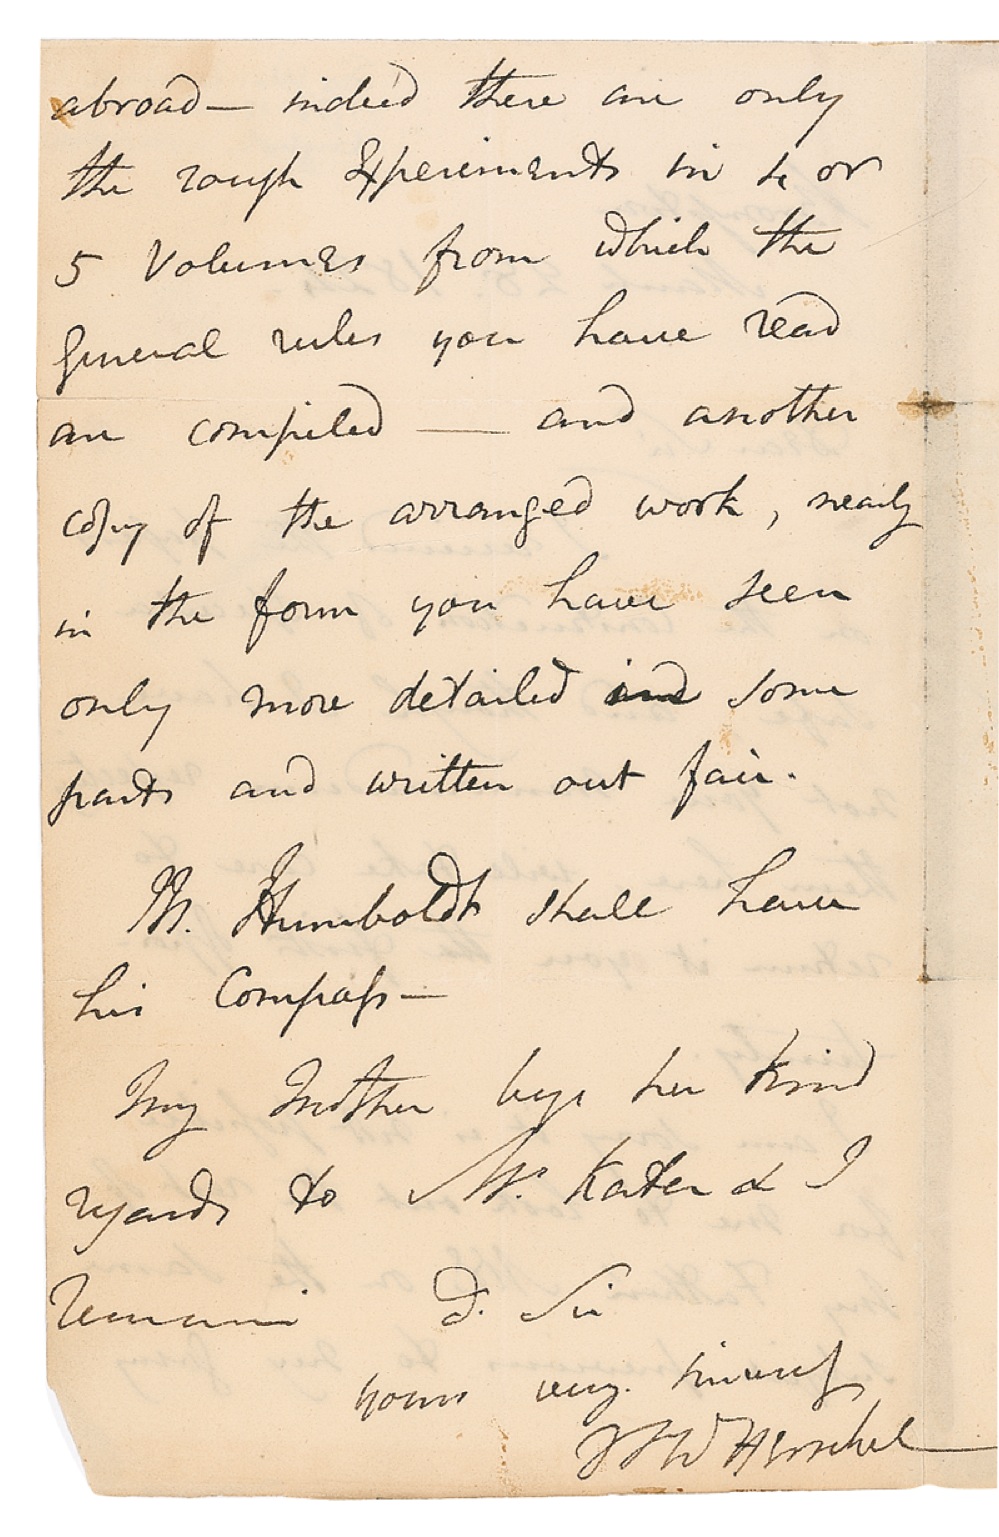 abroad — indeed there are only
the rough Experiments in 4 or
5 Volumes from which the
general rules you have read
are compiled — and another
copy of the arranged work, nearly
in the form you have seen
only more detailed in some
parts and written out fair.
M. Humboldt shall have
his Compass —
My Mother begs her kind
regards to Mrs. Kater & I
remain D. Sir
yours very sincerely
J F W Herschel